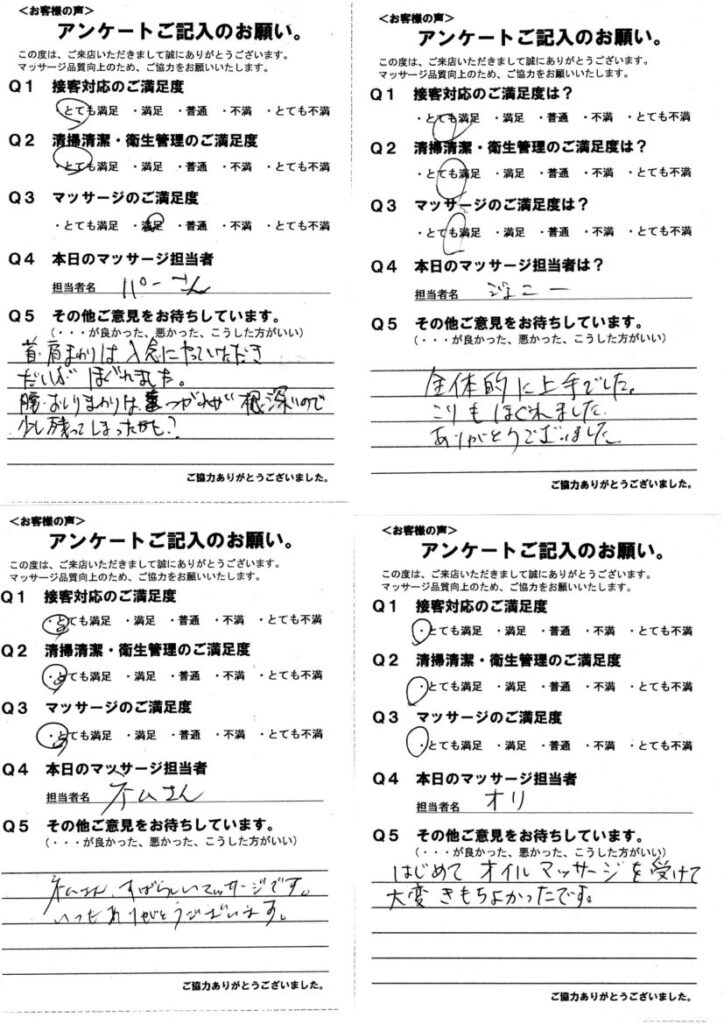 ＜お客様の声＞
アンケートご記入のお願い。
この度は、ご来店いただきまして誠にありがとうございます。
マッサージ品質向上のため、ご協力をお願いいたします。
Q1 接客対応のご満足度
・とても満足 ・満足 ・普通 ・不満 ・とても不満
Q2 清掃清潔・衛生管理のご満足度
・とても満足 ・満足 ・普通 ・不満 ・とても不満
Q3 マッサージのご満足度
・とても満足 ・満足 ・普通 ・不満 ・とても不満
Q4 本日のマッサージ担当者
担当者名 パーさん
Q5 その他ご意見をお待ちしています。
（・・・が良かった、悪かった、こうした方がいい）
首・肩まわりは入念にやっていただき
だいぶほぐれました。
腰・おしりまわりは、つかれが根深いので
少し残ってしまったかも？
ご協力ありがとうございました。
＜お客様の声＞
アンケートご記入のお願い。
この度は、ご来店いただきまして誠にありがとうございます。
マッサージ品質向上のため、ご協力をお願いいたします。
Q1 接客対応のご満足度は？
・とても満足 ・満足 ・普通 ・不満 ・とても不満
Q2 清掃清潔・衛生管理のご満足度は？
・とても満足 ・満足 ・普通 ・不満 ・とても不満
Q3 マッサージのご満足度は？
・とても満足 ・満足 ・普通 ・不満 ・とても不満
Q4 本日のマッサージ担当者は？
担当者名 ジョニー
Q5 その他ご意見をお待ちしています。
（・・・が良かった、悪かった、こうした方がいい）
全体的に上手でした。
こりもほぐれました。
ありがとうございました
ご協力ありがとうございました。
＜お客様の声＞
アンケートご記入のお願い。
この度は、ご来店いただきまして誠にありがとうございます。
マッサージ品質向上のため、ご協力をお願いいたします。
Q1 接客対応のご満足度
・とても満足 ・満足 ・普通 ・不満 ・とても不満
Q2 清掃清潔・衛生管理のご満足度
・とても満足 ・満足 ・普通 ・不満 ・とても不満
Q3 マッサージのご満足度
・とても満足 ・満足 ・普通 ・不満 ・とても不満
Q4 本日のマッサージ担当者
担当者名 ネムさん
Q5 その他ご意見をお待ちしています。
（・・・が良かった、悪かった、こうした方がいい）
ネムさん すばらしいマッサージです。
いつもありがとうございます。
ご協力ありがとうございました。
＜お客様の声＞
アンケートご記入のお願い。
この度は、ご来店いただきまして誠にありがとうございます。
マッサージ品質向上のため、ご協力をお願いいたします。
Q1 接客対応のご満足度
・とても満足 ・満足 ・普通 ・不満 ・とても不満
Q2 清掃清潔・衛生管理のご満足度
・とても満足 ・満足 ・普通 ・不満 ・とても不満
Q3 マッサージのご満足度
・とても満足 ・満足 ・普通 ・不満 ・とても不満
Q4 本日のマッサージ担当者
担当者名 オリ
Q5 その他ご意見をお待ちしています。
（・・・が良かった、悪かった、こうした方がいい）
はじめて オイルマッサージを受けて
大変きもちよかったです。
ご協力ありがとうございました。